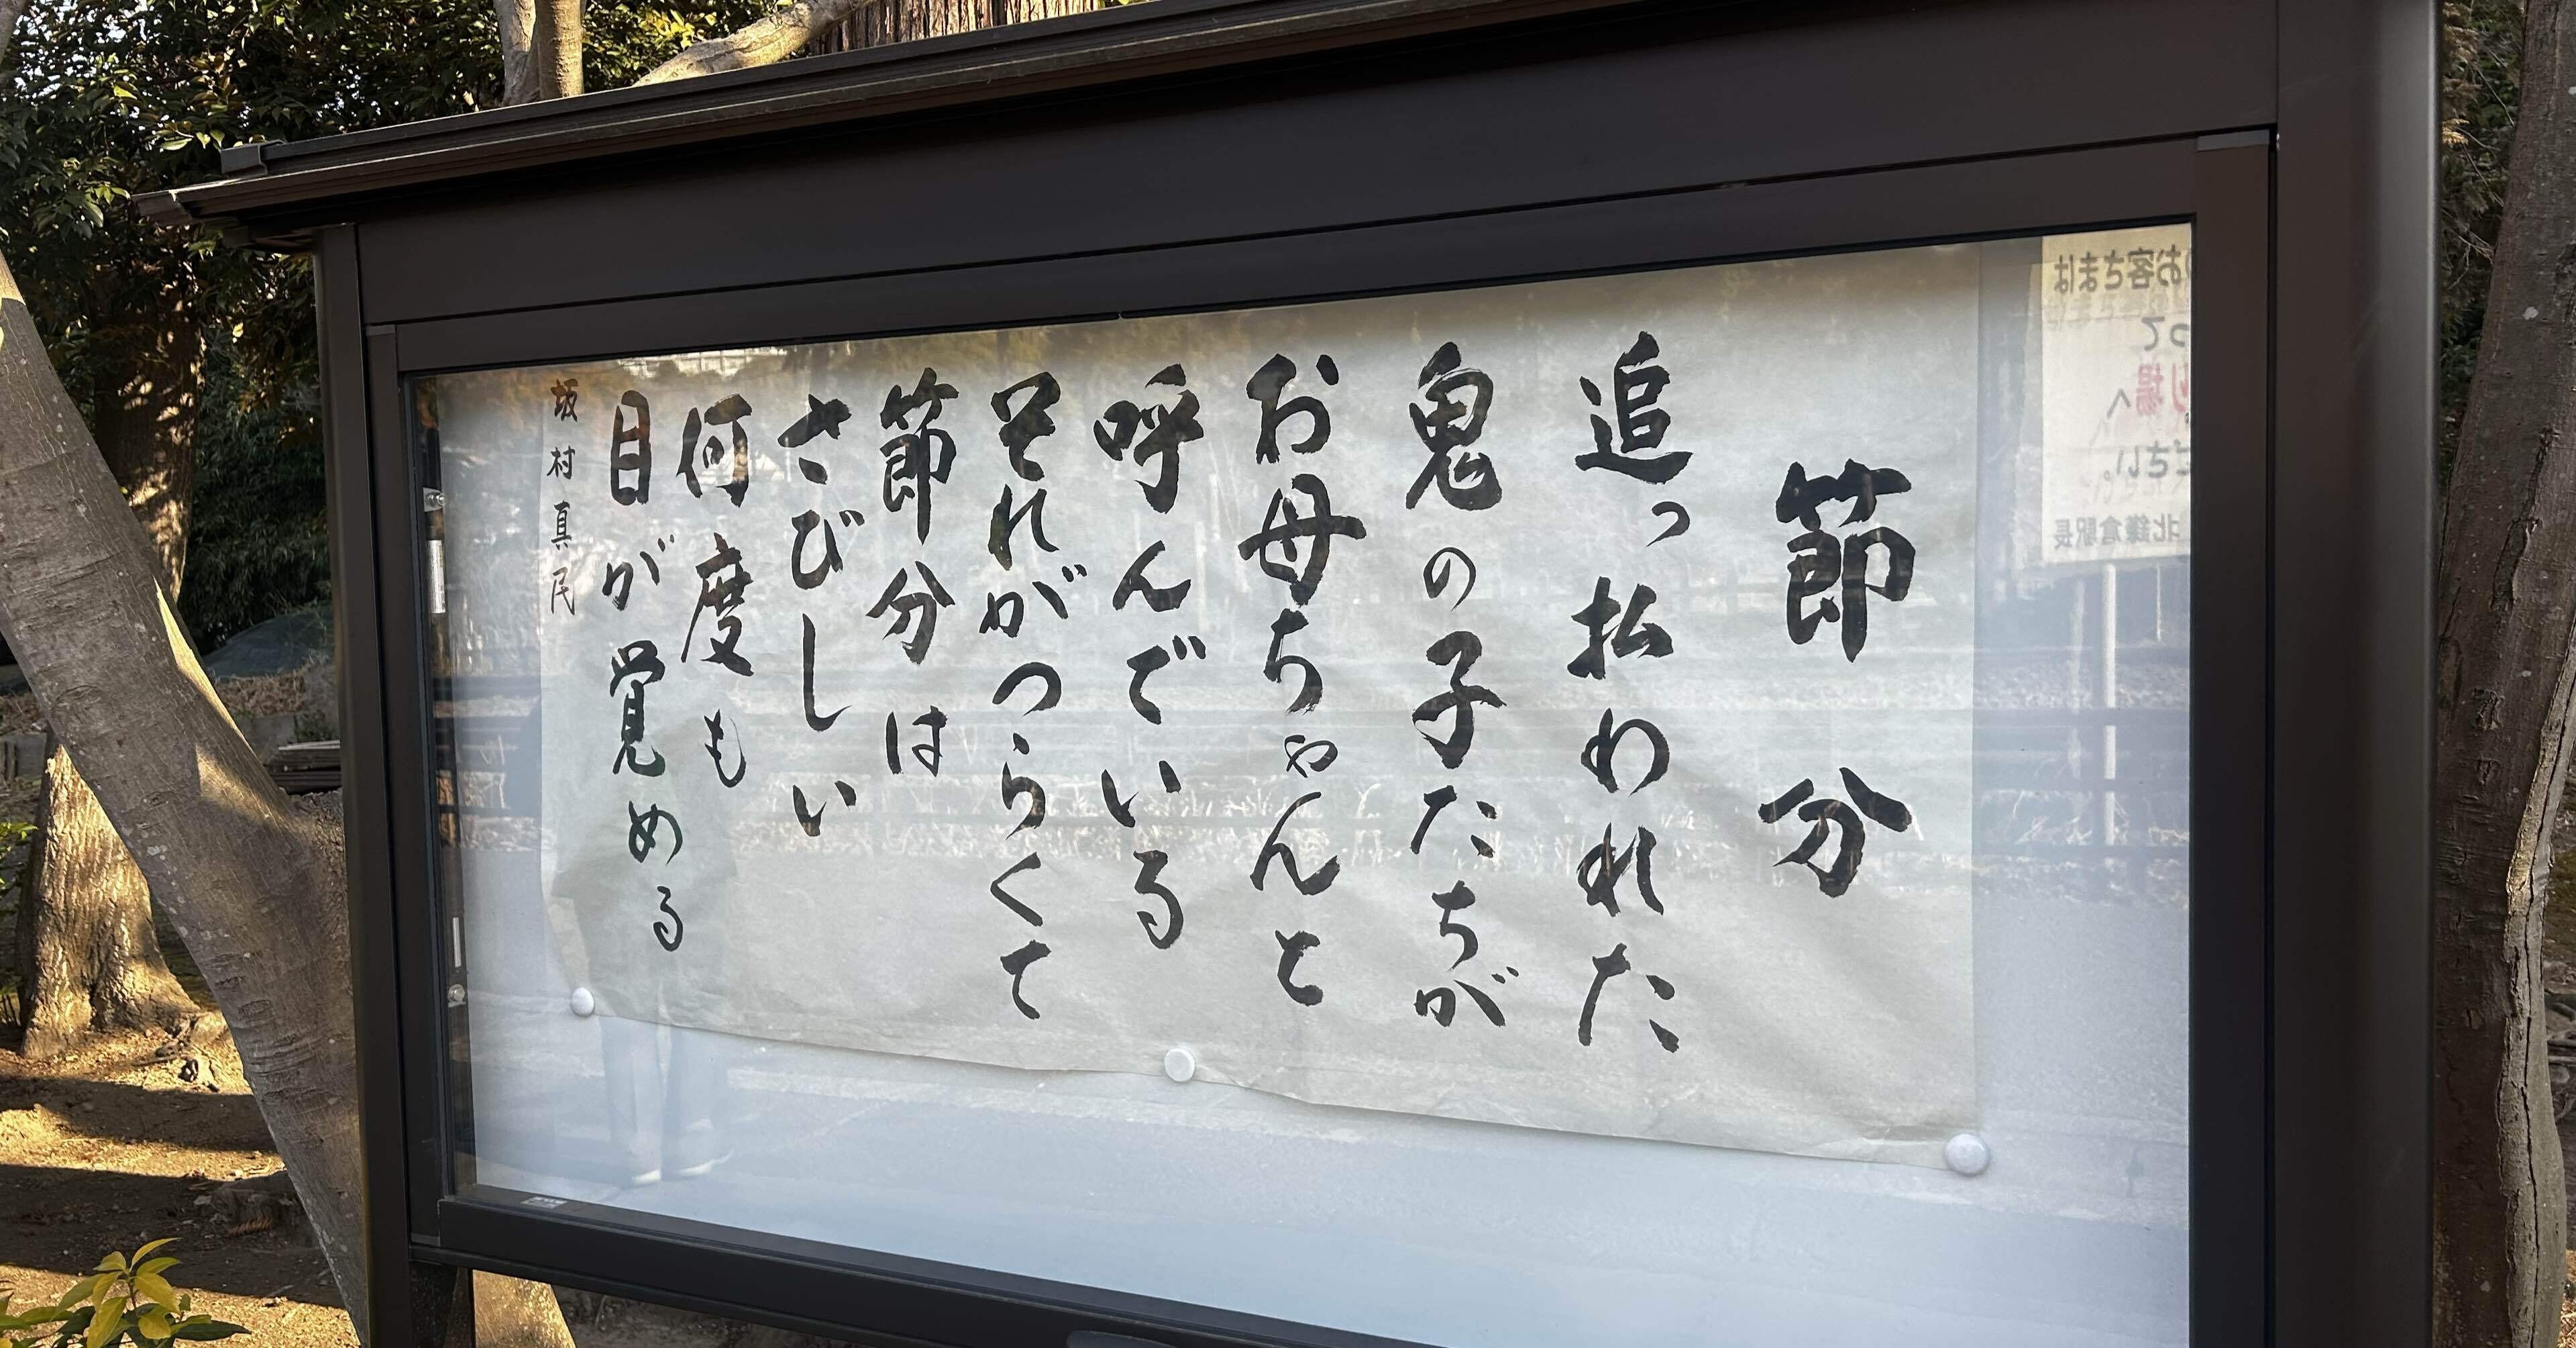 節分
追っ払われた
鬼の子たちが
お母ちゃんと
呼んでいる
それがつらくて
節分は
さびしい
何度も
目が覚める
坂村真民
お客さまは
って
り場へ
ださい。
北鎌倉駅長